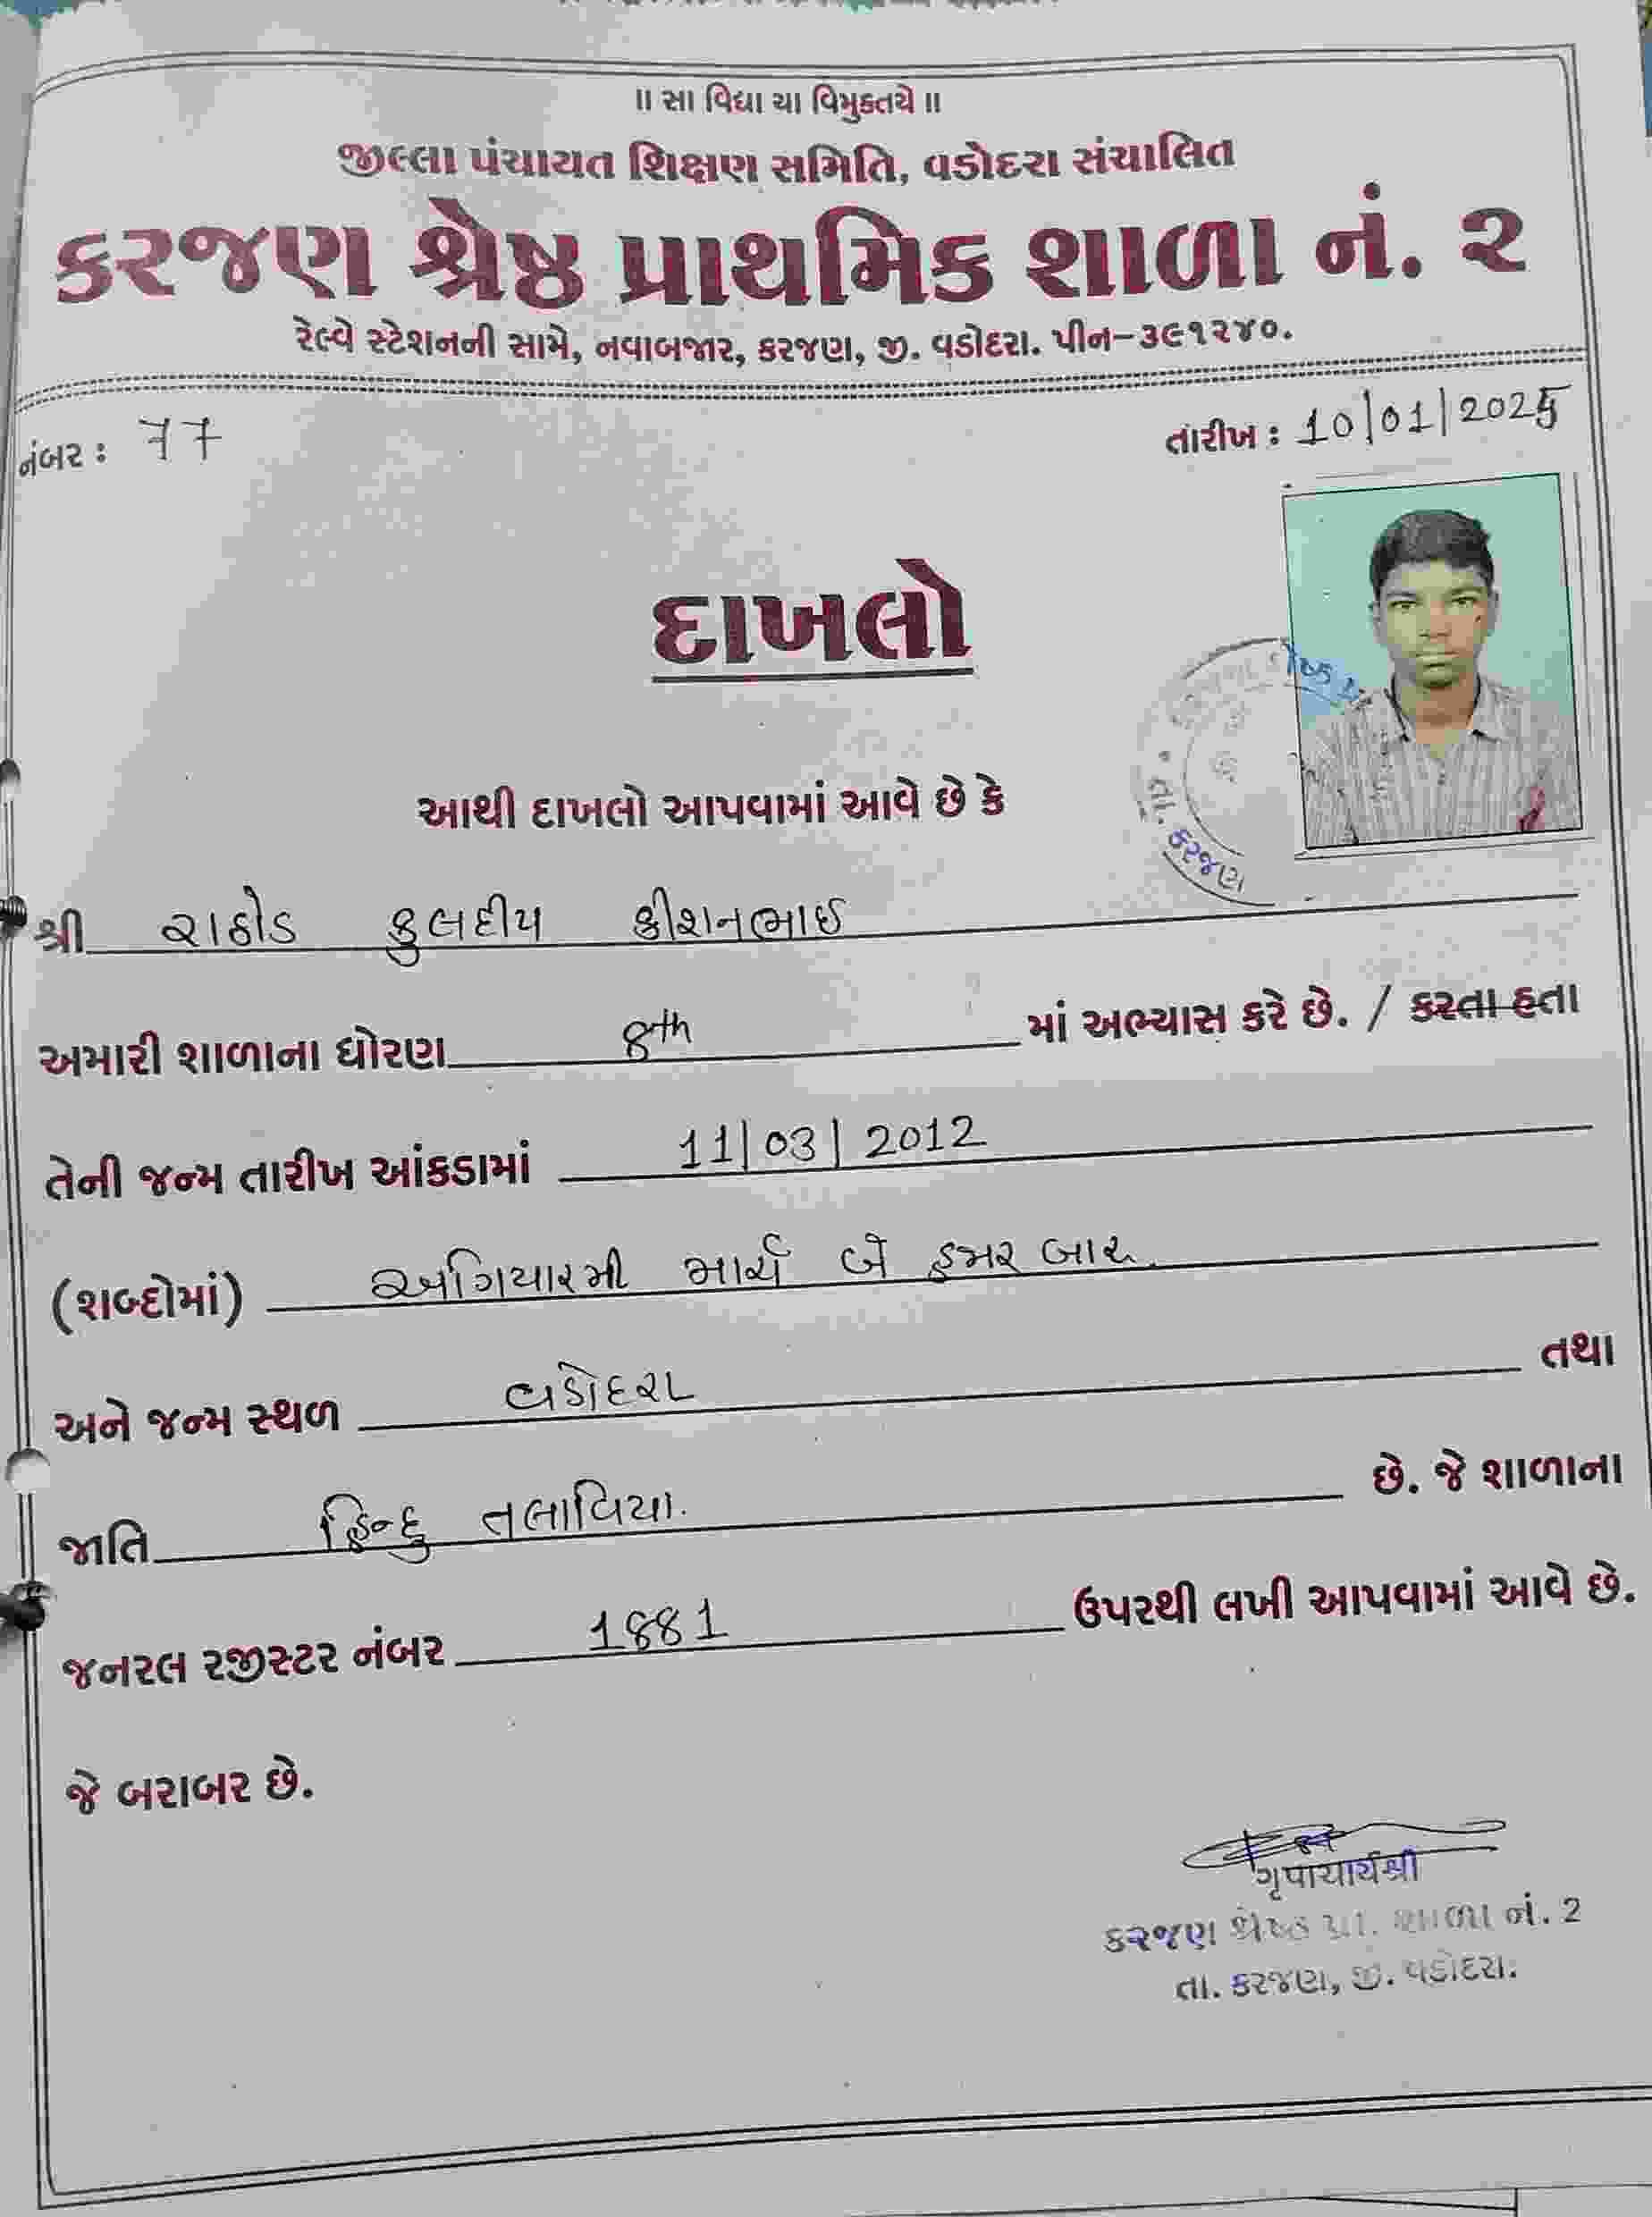 ॥ સા વિદ્યા યા વિમુક્તયે ॥
જીલ્લા પંચાયત શિક્ષણ સમિતિ, વડોદરા સંચાલિત
કરજણ શ્રેષ્ઠ પ્રાથમિક શાળા નં. ૨
રેલ્વે સ્ટેશનની સામે, નવાબજાર, કરજણ, જી. વડોદરા. પીન-૩૯૧૨૪૦.
નંબર : 77 તારીખ : 10/01/2025
દાખલો
આથી દાખલો આપવામાં આવે છે કે
તા. કરજણ
શ્રી રાઠોડ કુલદીપ કીશનભાઈ
અમારી શાળાના ધોરણ 8th માં અભ્યાસ કરે છે. / કરતા હતા
તેની જન્મ તારીખ આંકડામાં 11/03/2012
(શબ્દોમાં) અગિયારમી માર્ચ બે હજાર બાર
અને જન્મ સ્થળ વડોદરા તથા
જાતિ હિન્દુ તલાવિયા. છે. જે શાળાના
જનરલ રજીસ્ટર નંબર 1881 ઉપરથી લખી આપવામાં આવે છે.
જે બરાબર છે.
કરજણ શ્રેષ્ઠ પ્રા. શાળા નં. 2
તા. કરજણ, જી. વડોદરા.